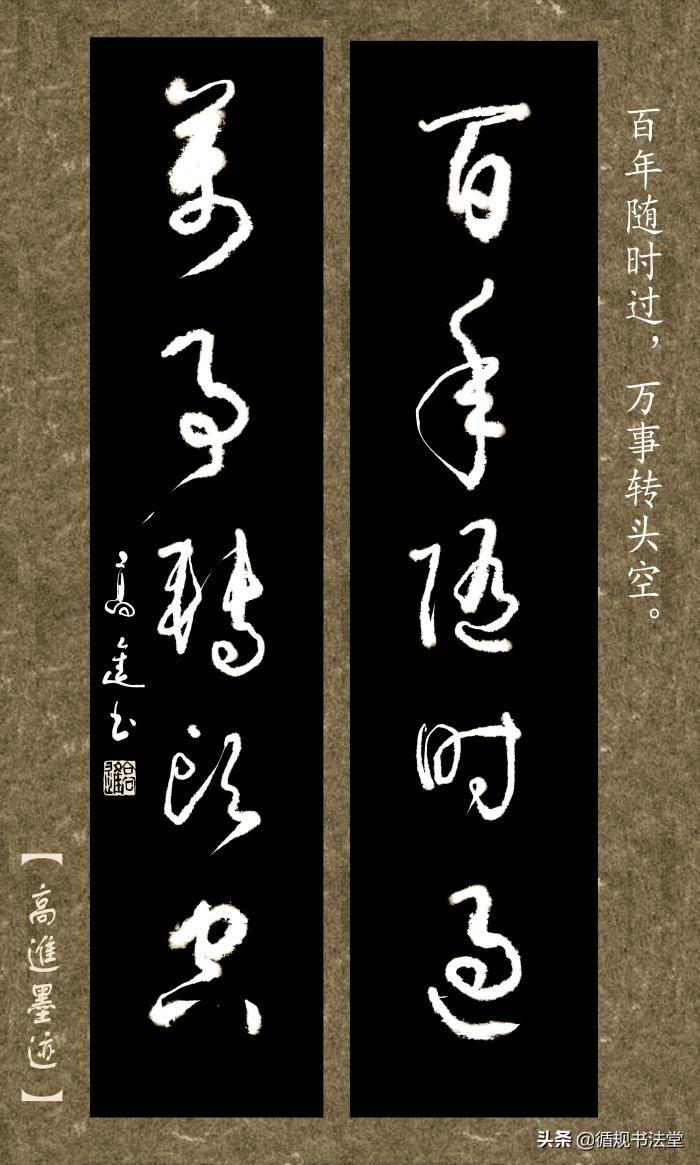 百年随时过，万事转头空。
百年随时過
萬事轉头空
高進书
【高進墨迹】
头条 @循规书法堂